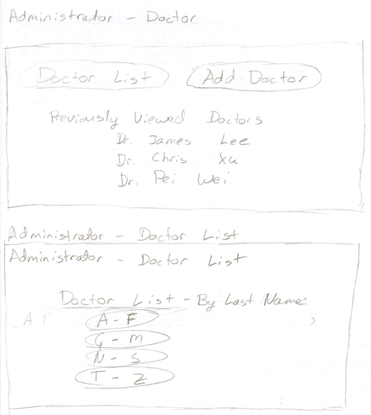 Administrator - Doctor
Doctor List Add Doctor
Previously Viewed Doctors
Dr. James Lee
Dr. Chris Xu
Dr. Pei Wei
Administrator - Doctor List
Administrator - Doctor List
Doctor List - By Last Name
A - F
G - M
N - S
T - Z